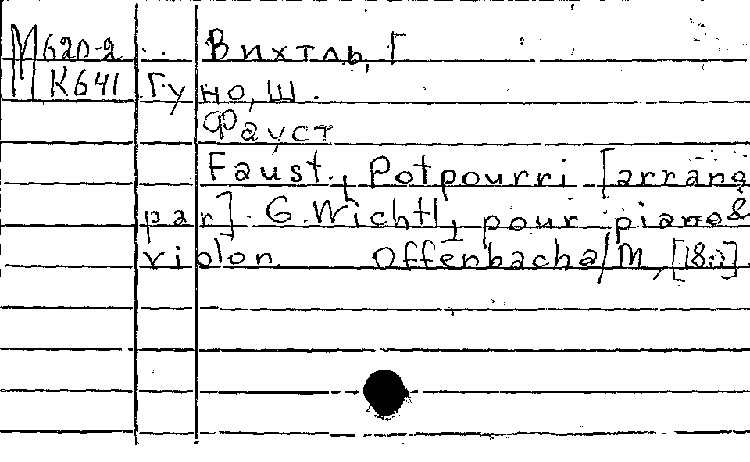 М620-2 Вихтль, Г
К641 Гуно, Ш.
Фауст
Faust., Potpourri [arrang
par]. G. Wichtl, pour piano &
violon Offenbach a/M, [18